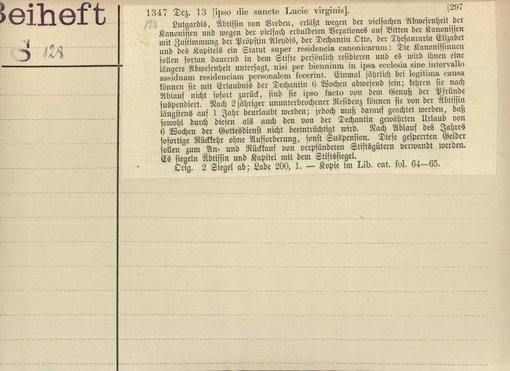 Beiheft
S 128
1347 Dez. 13 [ipso die sancte Lucie virginis]. [297
128
Lutgardis, Äbtissin von Vreden, erläßt wegen der vielfachen Abwesenheit der
Kanonissen und wegen der vielfach erduldeten Vexationes auf Bitten der Kanonissen
mit Zustimmung der Pröpstin Aleydis, der Dechantin Otto, der Thesauraria Elizabet
und des Kapitels ein Statut super residencia canonicarum: Die Kanonissinnen
sollen fortan dauernd in dem Stifte persönlich residieren und es wird ihnen eine
längere Abwesenheit untersagt, nisi per biennium in ipsa ecclesia sine intervallo
assiduam residenciam personalem fecerint. Einmal jährlich bei legitima causa
können sie mit Erlaubnis der Dechantin 6 Wochen abwesend sein; kehren sie nach
Ablauf nicht sofort zurück, sind sie ipso facto von dem Genuß der Pfründe
suspendiert. Nach 2jähriger ununterbrochener Residenz können sie von der Äbtissin
längstens auf 1 Jahr beurlaubt werden; jedoch muß darauf geachtet werden, daß
sowohl durch diesen als auch den von der Dechantin gewährten Urlaub von
6 Wochen der Gottesdienst nicht beeinträchtigt wird. Nach Ablauf des Jahres
sofortige Rückkehr ohne Aufforderung, sonst Suspension. Diese gesperrten Gelder
sollen zum An- und Rückkauf von verpfändeten Stiftsgütern verwandt werden.
Es siegeln Äbtissin und Kapitel mit dem Stiftssiegel.
Orig. 2 Siegel ab; Lade 200, 1. — Kopie im Lib. cat. fol. 64—65.